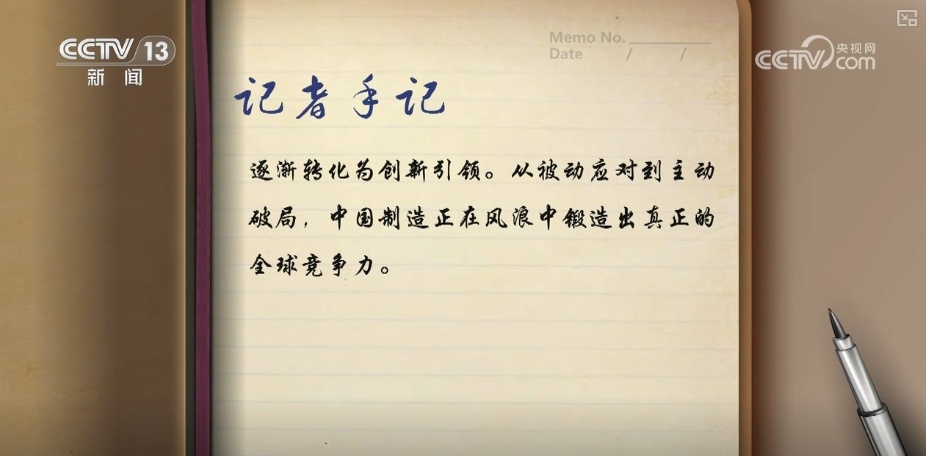 CCTV 13
新闻
Memo No.
Date / /
央视网
CCTV.com
记者手记
逐渐转化为创新引领。从被动应对到主动
破局，中国制造正在风浪中锻造出真正的
全球竞争力。